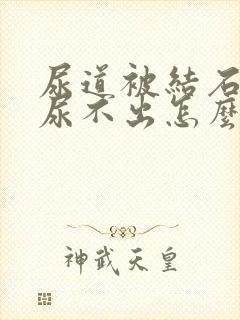 尿道被結石
尿不出怎麼
神武天皇